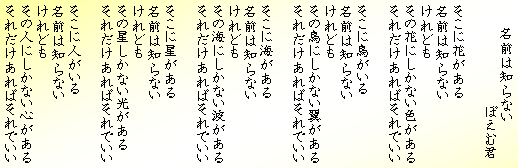 名前は知らない
ぽえむ君
そこに花がある
名前は知らない
けれども
その花にしかない色がある
それだけあればそれでいい
そこに鳥がいる
名前は知らない
けれども
その鳥にしかない翼がある
それだけあればそれでいい
そこに海がある
名前は知らない
けれども
その海にしかない波がある
それだけあればそれでいい
そこに星がある
名前は知らない
けれども
その星しかない光がある
それだけあればそれでいい
そこに人がいる
名前は知らない
けれども
その人にしかない心がある
それだけあればそれでいい